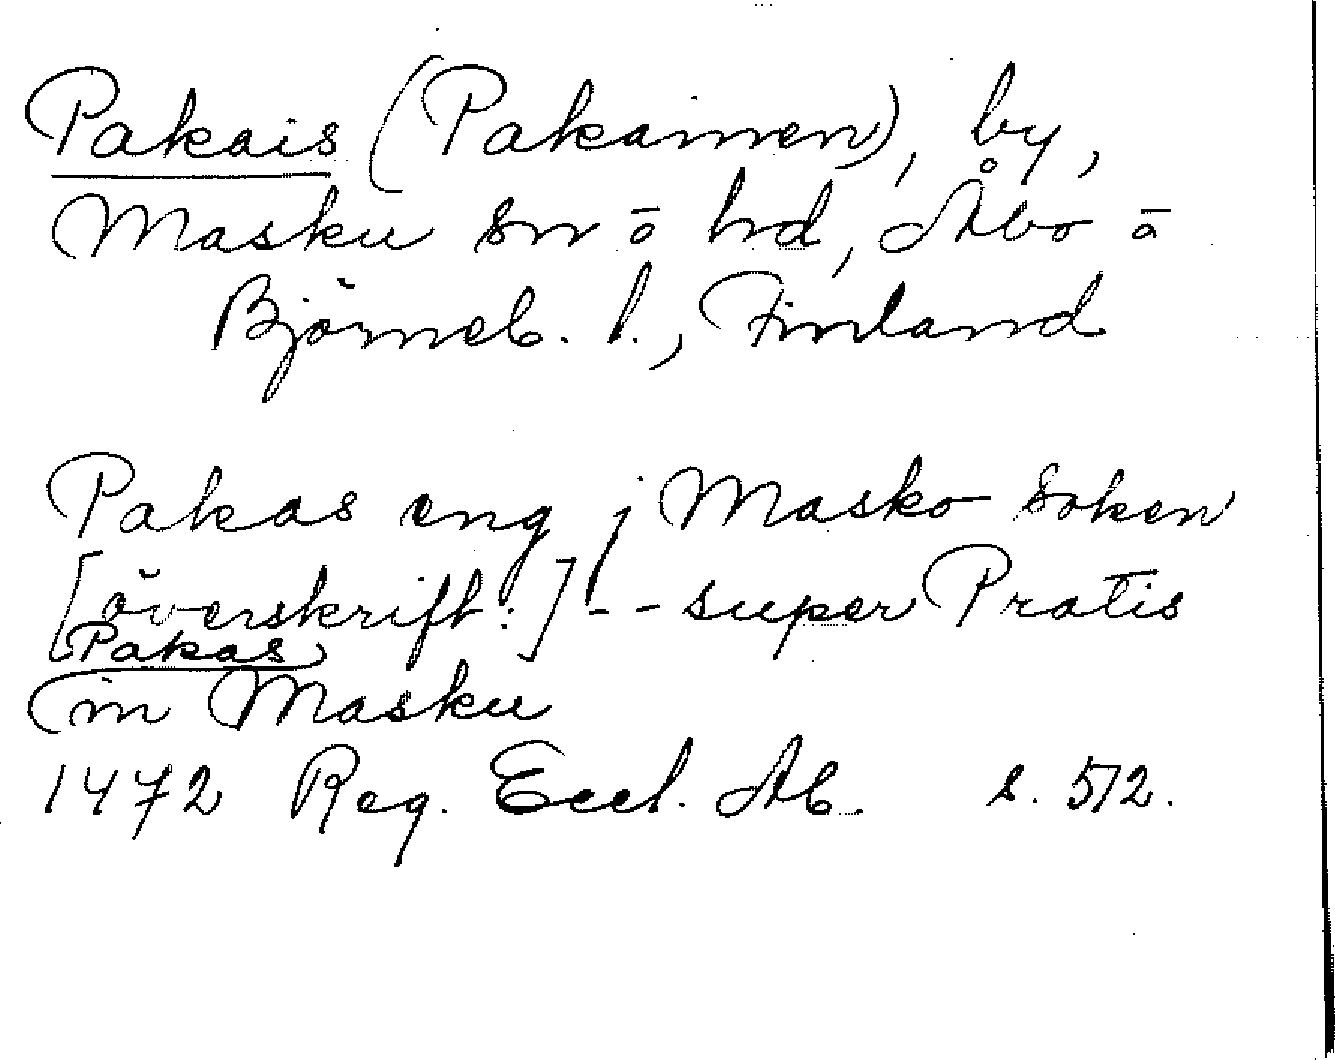 Pakais (Pakainen), by,
Masku sn o hd, Åbo o
Björneb. l., Finland
Pakas eng j Masko Soken
[överskrift:] - - super Pratis
Pakas
in Masku
1472 Reg. Eccl. Ab. s. 572.